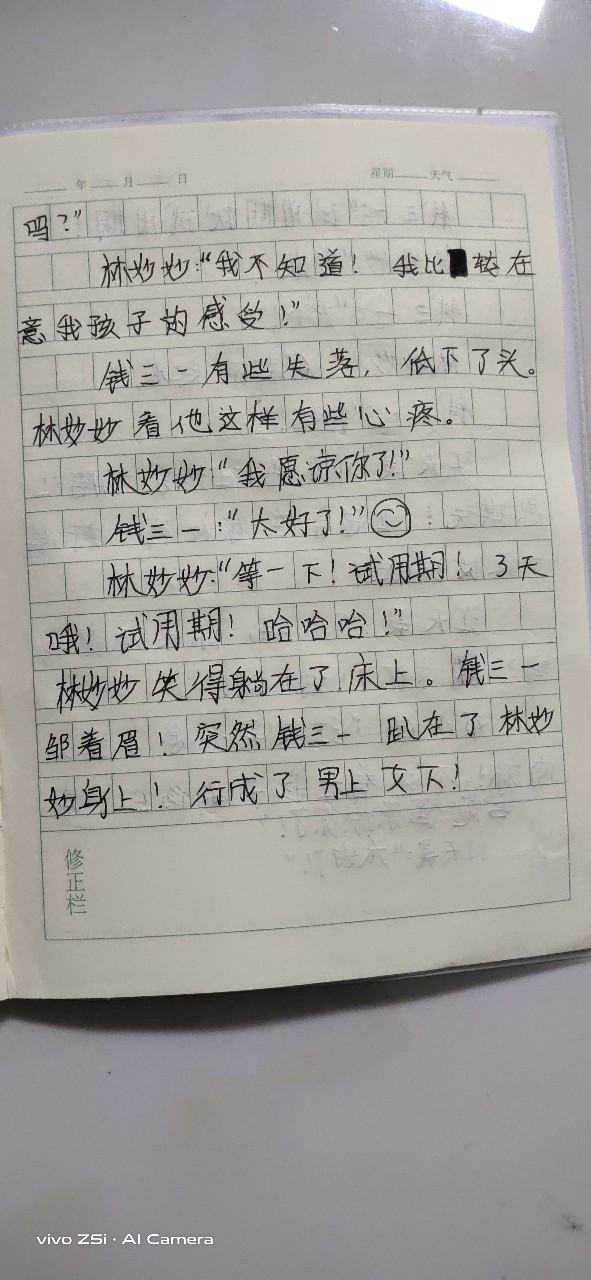 年 月 日 星期 天气
吗？”
林妙妙：“我不知道！ 我比较在
意我孩子的感受！”
钱三一有些失落， 低下了头。
林妙妙看他这样有些心疼。
林妙妙“我愿谅你了！”
钱三一：“太好了！”
林妙妙：“等一下！试用期！ 3天
哦！试用期！ 哈哈哈！”
林妙妙笑得躺在了床上。钱三一
邹着眉！ 突然钱三一 趴在了林妙
妙身上！ 行成了 男上女下！
修正栏
vivo Z5i · AI Camera